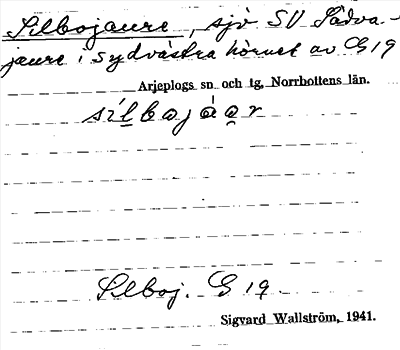 Silbojaure, sjö SV Sädva-
jaure i sydvästra hörnet av G 19
Arjeplogs sn och tg, Norrbottens län.
sílbajáar
Silboj. G 19.
Sigvard Wallström, 1941.